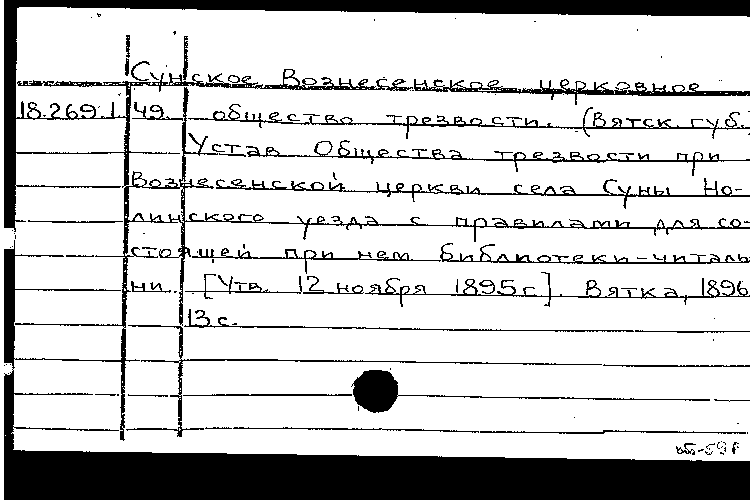 Сунское Вознесенское церковное
18.269.1.49 общество трезвости. (Вятск. губ.)
Устав Общества трезвости при
Вознесенской церкви села Суны Но-
линского уезда с правилами для со-
стоящей при нем библиотеки-читаль
ни. [Утв. 12 ноября 1895 г]. Вятка, 1896
13 с.